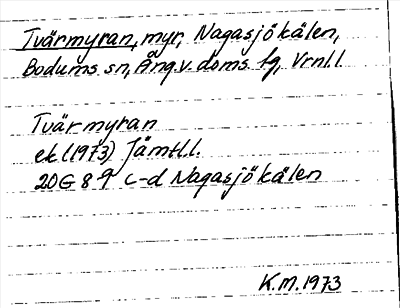 Tvärmyran, myr, Nagasjökälen,
Bodums sn, Ång.v. doms. fg, Vrnl l
Tvärmyran
ek (1973) Jämtl.l.
20G 8-9 c-d Nagasjökälen
K.M. 1973